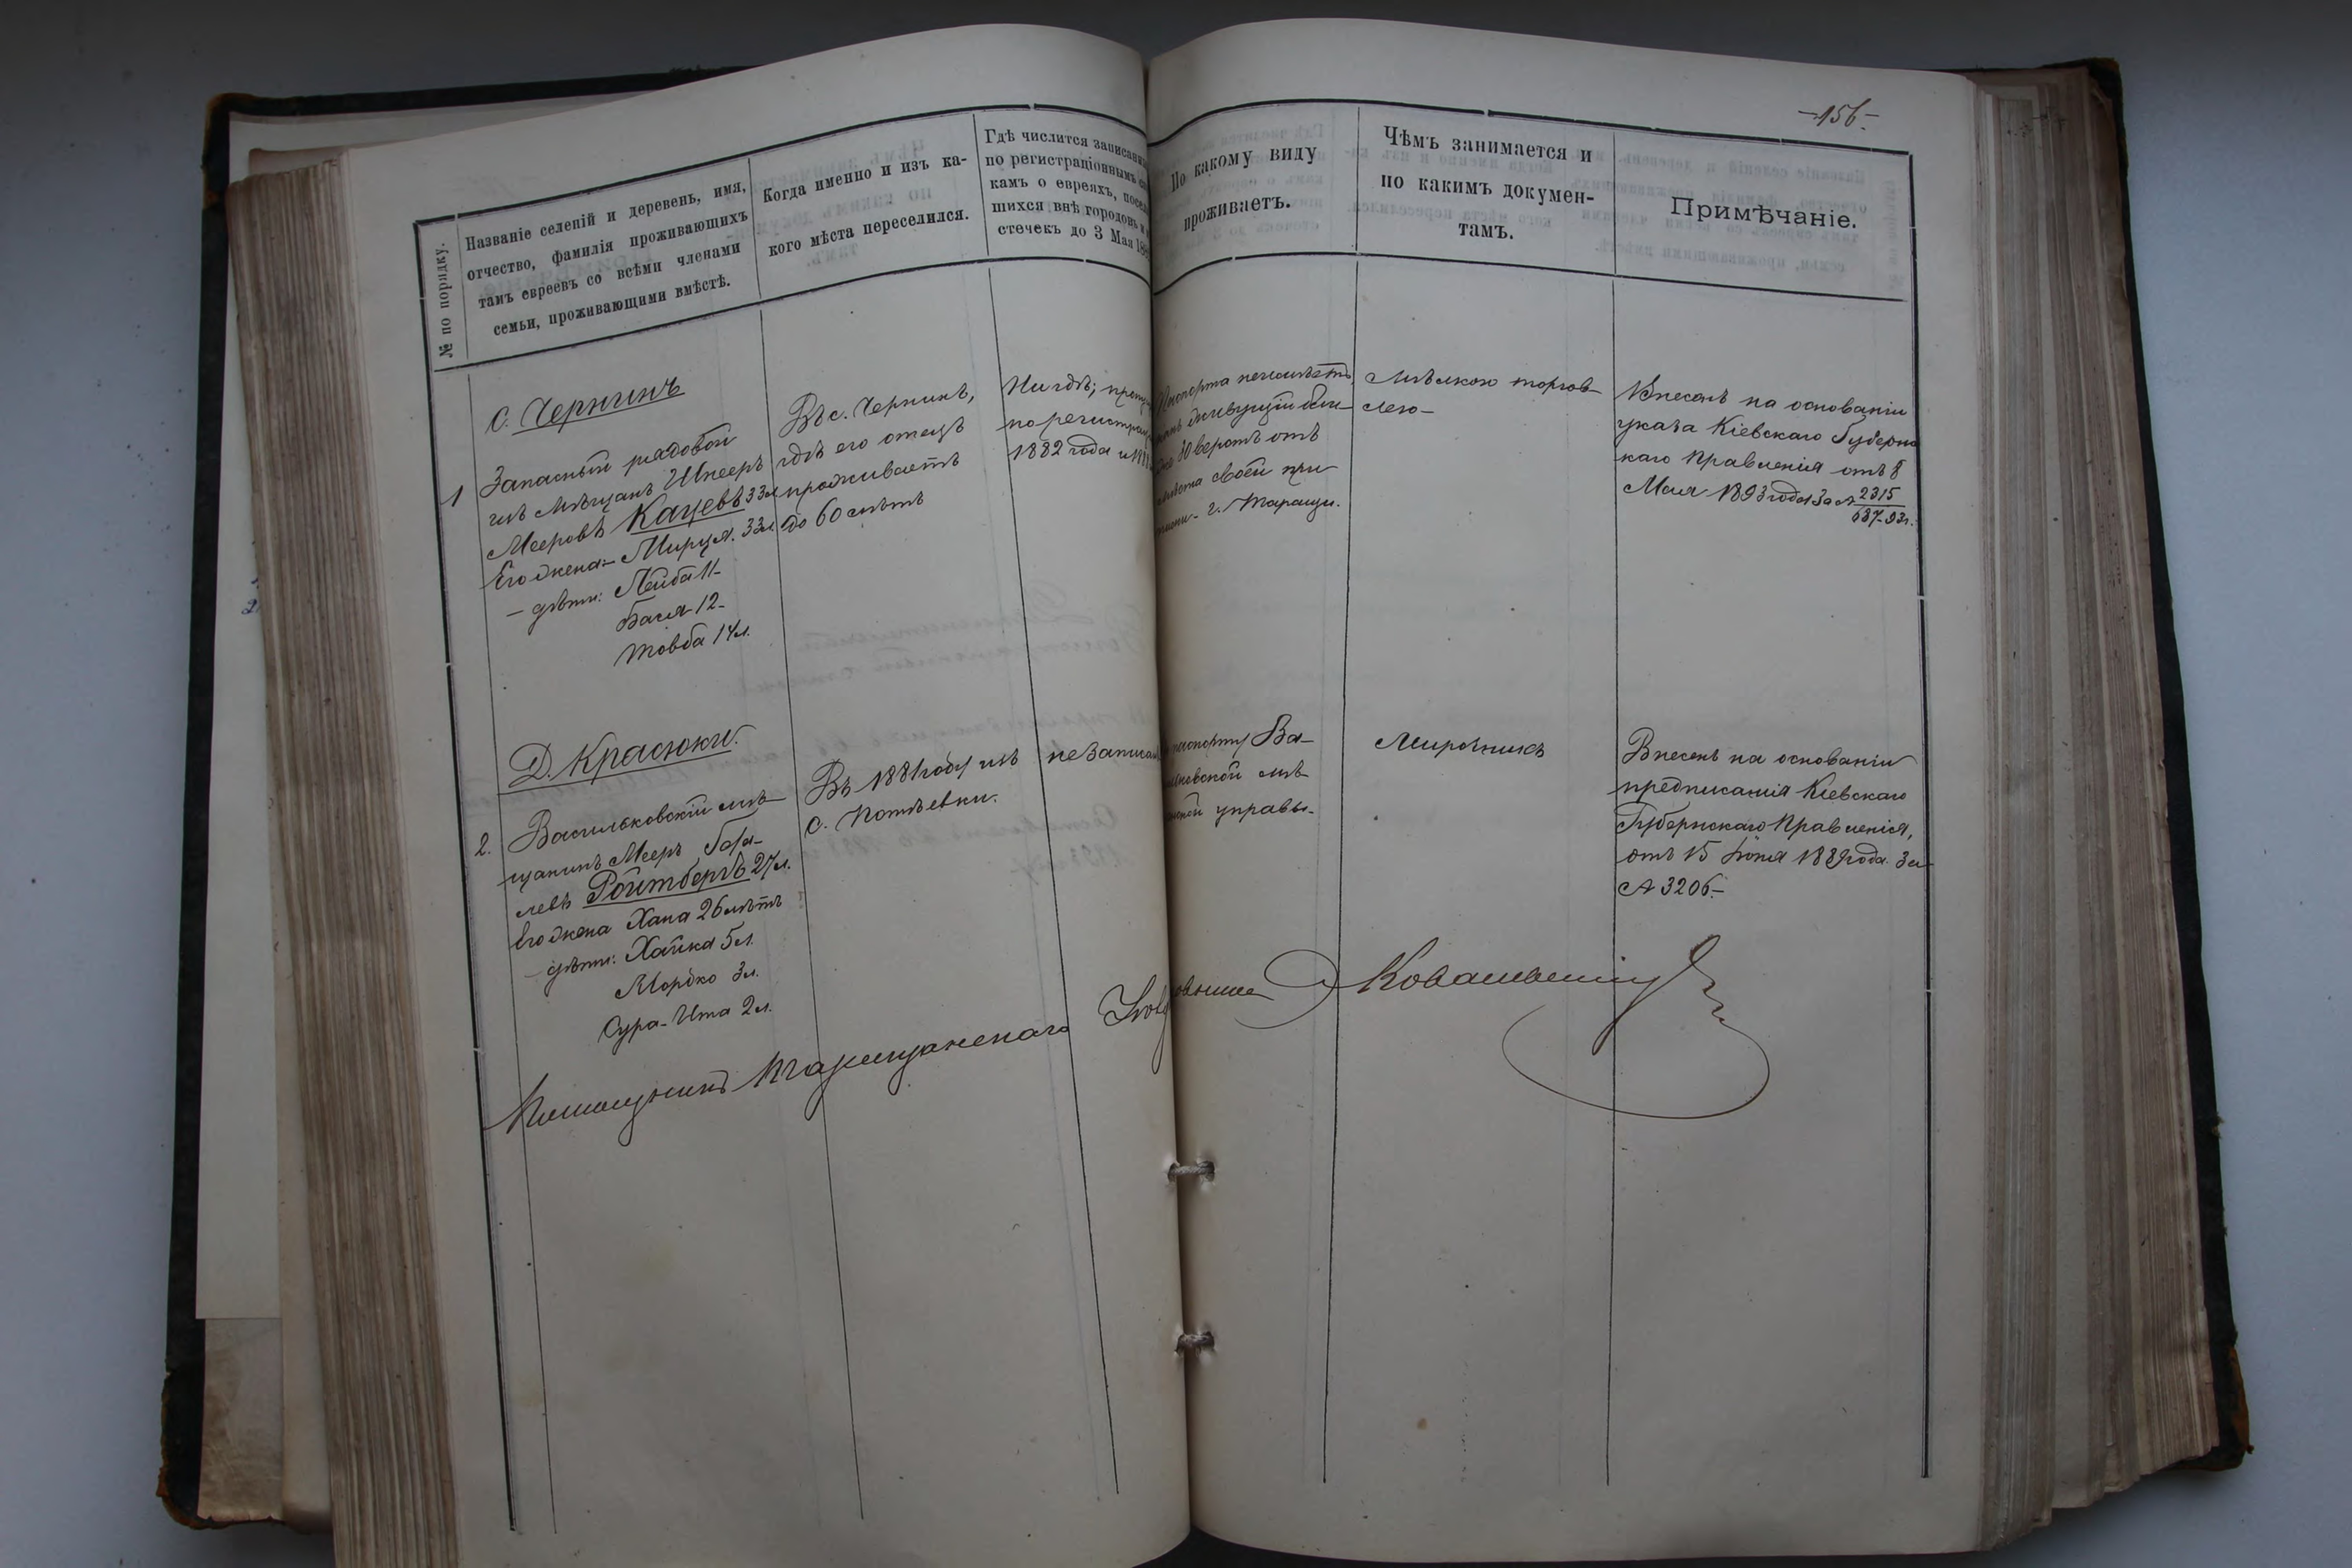 -156-
№ по порядку.
Названіе селеній и деревень, имя,
отчество, фамилія проживающихъ
тамъ евреевъ со всѣми членами
семьи, проживающими вмѣстѣ.
Когда именно и изъ ка-
кого мѣста переселился.
Гдѣ числится
по регистраціоннымъ
камъ о евреяхъ,
шихся внѣ городовъ и
стечекъ до 3 Мая
По какому виду
проживаетъ.
Чѣмъ занимается и
по какимъ докумен-
тамъ.
Примѣчаніе.
С. Чернинъ
1
Запасный рядовой
изъ мѣщанъ
Мееровъ Кацевъ 33 л.
Его жена - Мирця. 33 л.
- дѣти: Лейба 11 -
Бася 12 -
Товба 14 л.
Въ с. Чернинѣ,
гдѣ его отецъ
проживаетъ
до 60 лѣтъ
Нигдѣ;
по
1882 года и
Паспорта неимѣетъ,
живущій
30 верстъ отъ
мѣста своей при-
г. Таращи.
Мѣлкою торгов-
лею -
Внесенъ на основаніи
указа Кіевскаго Губернс
каго Правленія отъ 8
Мая 1893 года За № 2315
687-93 г.
Д. Красюки.
2.
Васильковскій мѣ-
щанинъ Мееръ
левъ Ройтбергъ 27 л.
Его жена Хана 26 лѣтъ
- дѣти: Хайка 5 л.
Мордко 3 л.
Сура-Ита 2 л.
Въ 1881 году изъ
с. Потіевки.
не записанъ
паспорту Ва-
мѣ-
управы.
Мирочникъ
Внесенъ на основаніи
предписанія Кіевскаго
Губернскаго Правленія,
отъ 15 Іюня 1889 года За
№ 3206.-
Помощникъ Таращанскаго